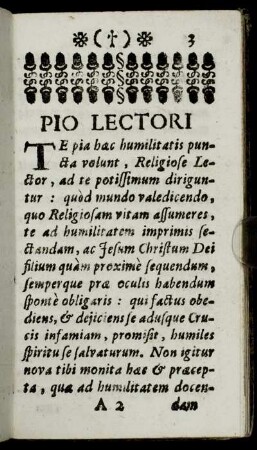 (†) 3
PIO LECTORI
TE pia hæc humilitatis pun-
cta volunt, Religiose Le-
ctor, ad te potissimum dirigun-
tur: quòd mundo valedicendo,
quo Religiosam vitam assumeres,
te ad humilitatem imprimis se-
ctandam, ac Jesum Christum Dei
filium quàm proximè sequendum,
semperque præ oculis habendum
spontè obligaris: qui factus obe-
diens, & dejiciens se adusque Cru-
cis infamiam, promisit, humiles
spiritu se salvaturum. Non igitur
nova tibi monita hæc & præcep-
ta, quæ ad humilitatem docen-
A 2 dam